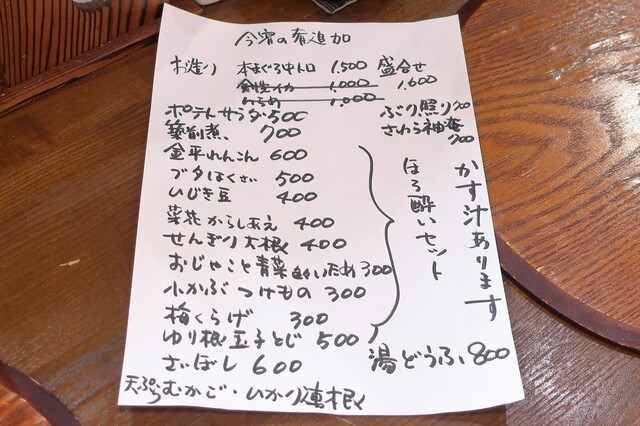 今宵の有追加
お造り 本まぐろ中トロ 1,500 盛合せ 1,600
剣先イカ 1,000
1,000
ポテトサラダ 500
築前煮 700
金平れんこん 600
ブタはくさい 500
ひじき豆 400
菜花からしあえ 400
せんぎり大根 400
おじゃこと青菜 いため 300
小かぶつけもの 300
梅くらげ 300
ゆり根玉子とじ 500
さいぼし 600
天ぷら むかご・いかり連根
ぶり照り 700
さわら柚庵 700
ほろ酔いセット
かす汁あります
湯どうふ 800